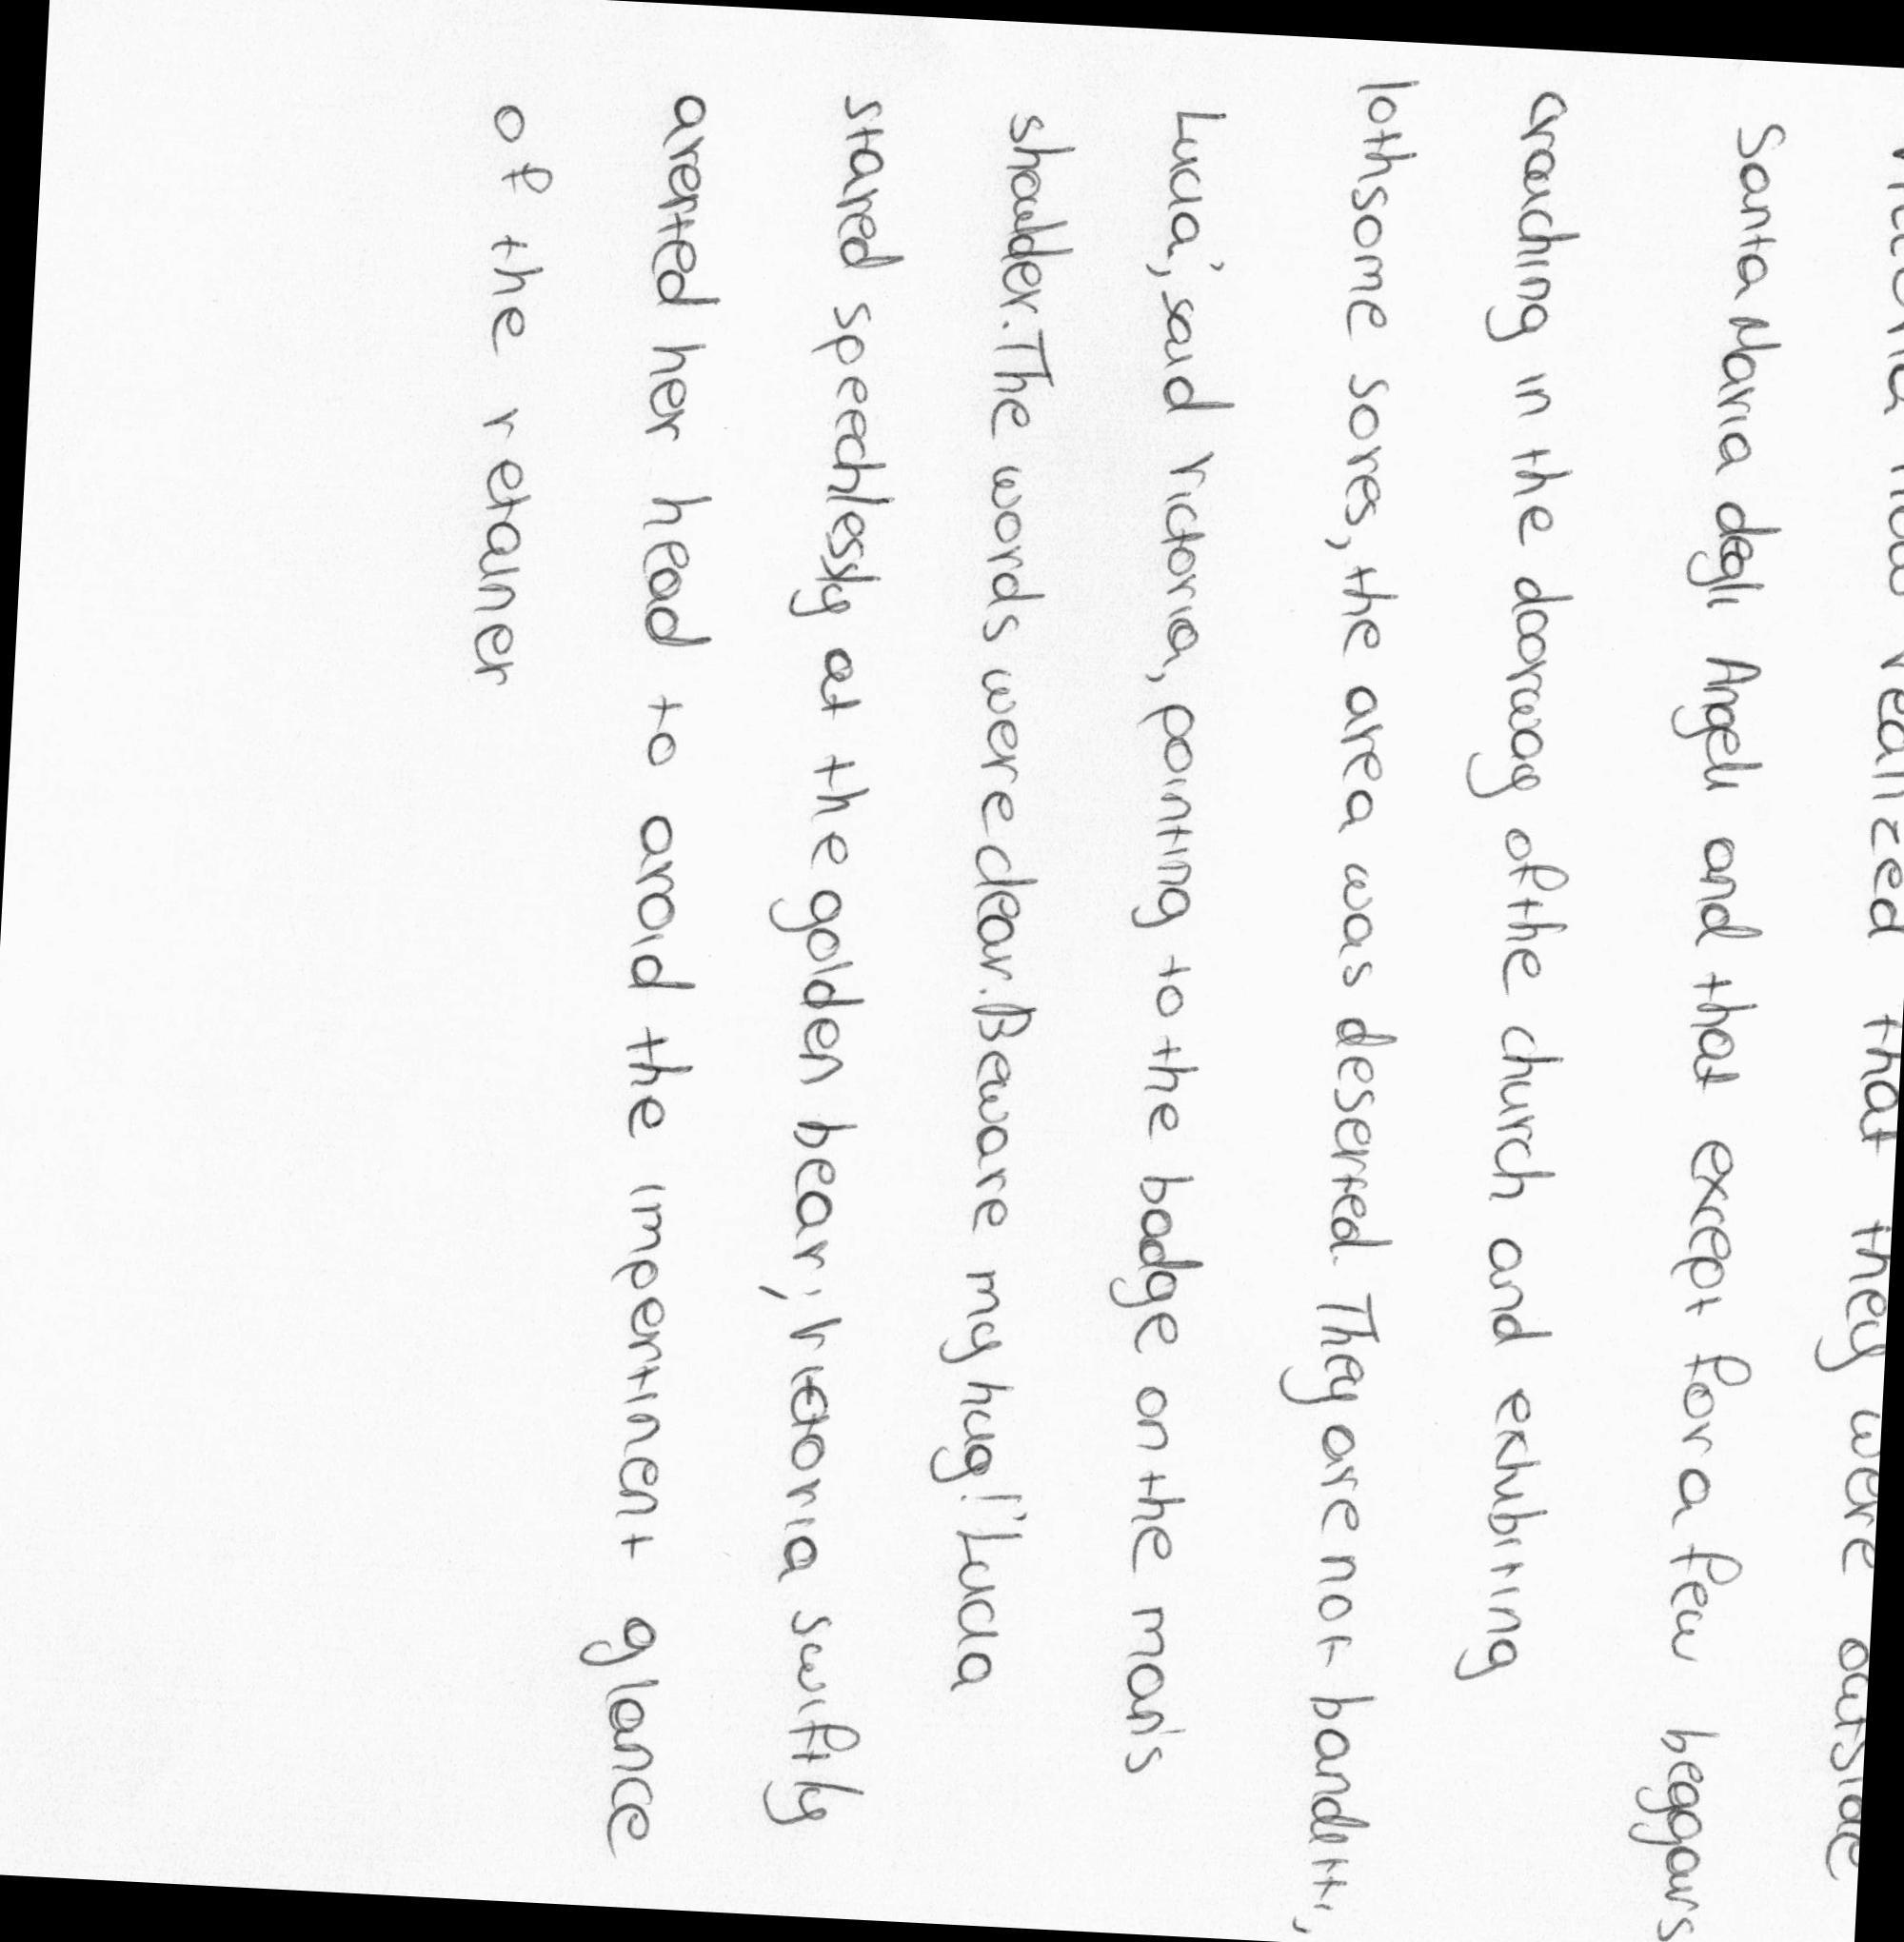 Victoria now realized that they were outside
Santa Maria degli Angeli and that except for a few beggars
crouching in the doorway of the church and exhibiting
lothsome sores, the area was deserted. They are not banditti,
Lucia', said Victoria, pointing to the badge on the man's
shoulder. The words were clear. Beware my hug!' Lucia
stared speechlessly at the golden bear; Victoria swiftly
averted her head to avoid the impertinent glance
of the retainer